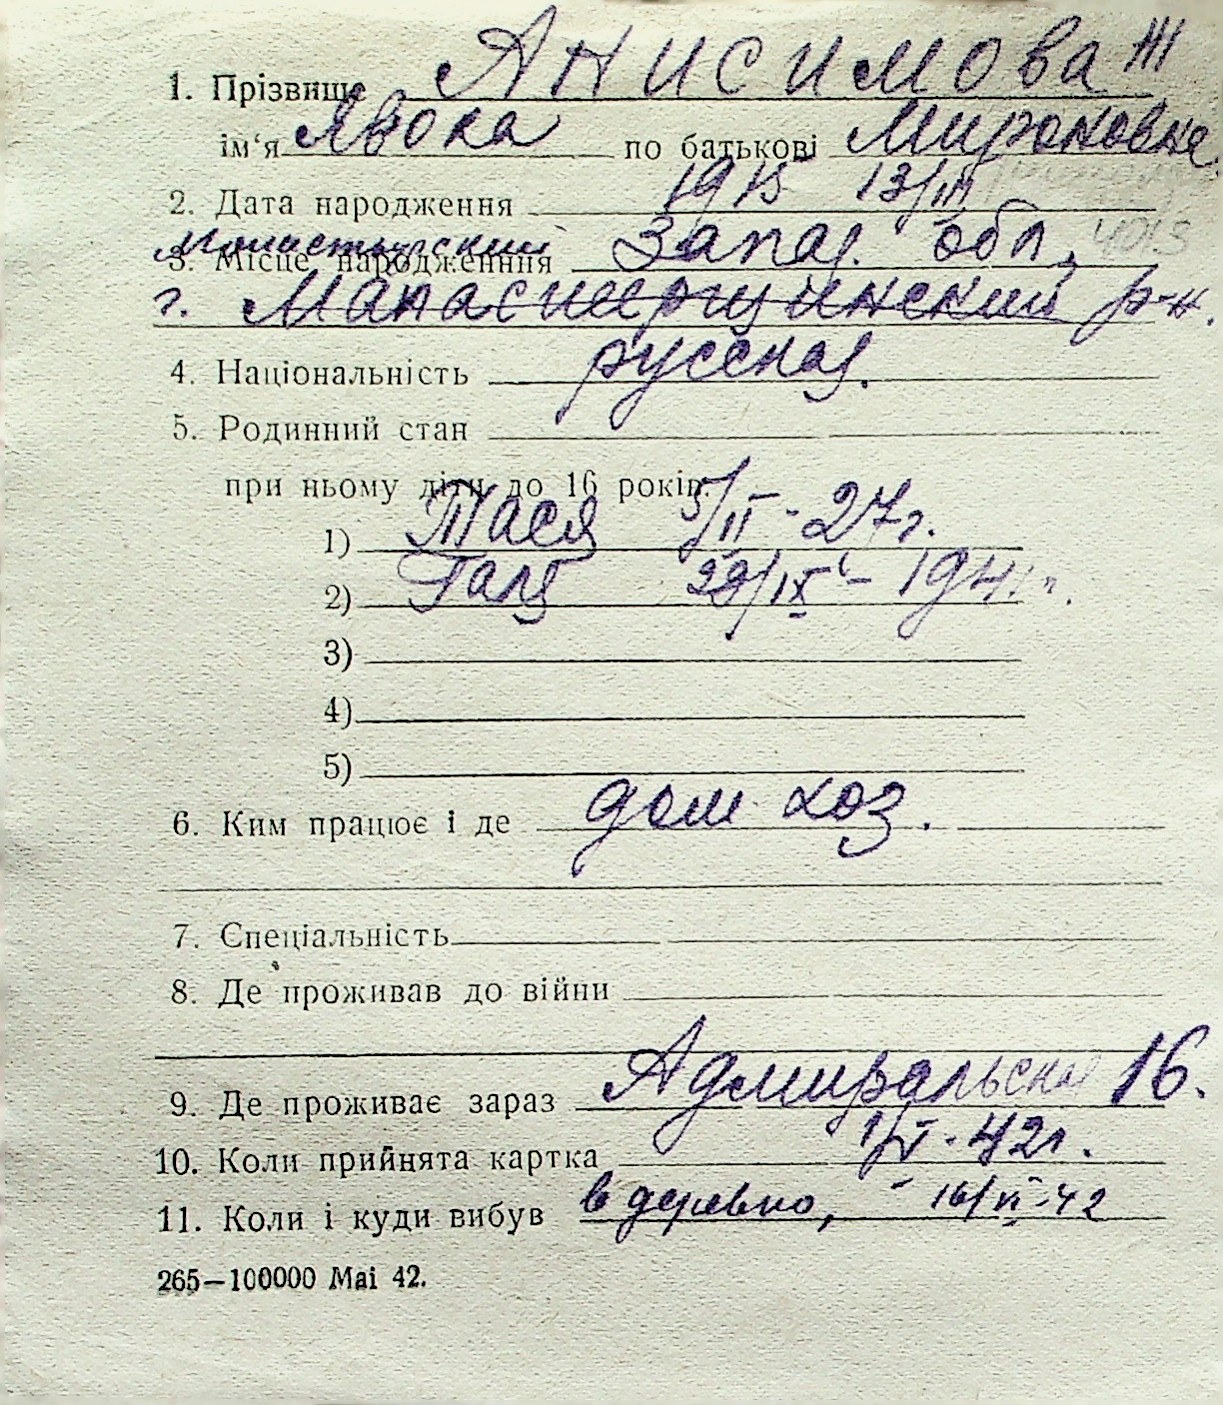 1. Прізвище Анисимова III
ім'я Явока по батькові Мироновна
2. Дата народження 1915 13/III
3. Місце народженння Запад. обл.
г. р-н.
4. Національність русская.
5. Родинний стан
при ньому діти до 16 років:
1) Тася 5/II - 27 г.
2) Галя /IX - 194
3)
4)
5)
6. Ким працює і де дом хоз.
7. Спеціальність
8. Де проживав до війни
9. Де проживає зараз Адмиральская 16.
10. Коли прийнята картка 1/VI - 42 г.
11. Коли і куди вибув в деревню, - 16/VI-42
265—100000 Mai 42.